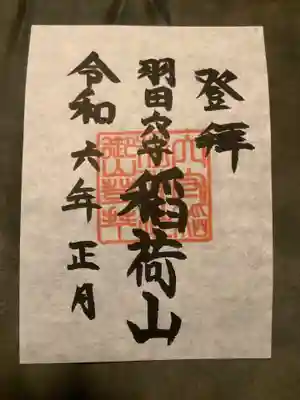 登拜
羽田穴守
稲荷山
令和六年正月